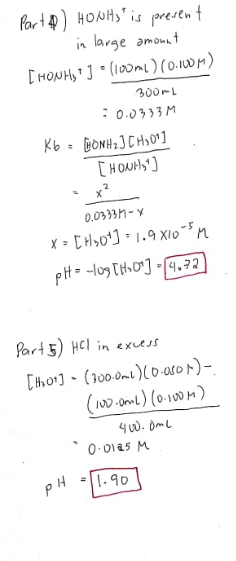 Part 4) HONH₃⁺ is present
in large amount
[HONH₃⁺] = (100mL)(0.100M)
300mL
= 0.0333M
Kb = [HONH₂][H₃O⁺]
[HONH₃⁺]
= x²
0.0333M-x
x = [H₃O⁺] = 1.9 x10⁻⁵ M
pH = -log[H₃O⁺] = 4.72
Part 5) HCl in excess
[H₃O⁺] = (300.0mL)(0.050M) -
(100.0mL)(0.100M)
400.0mL
= 0.0125 M
pH = 1.90